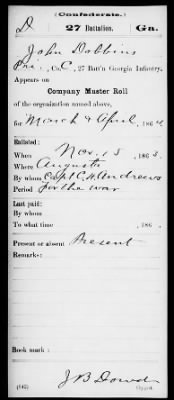 (Confederate.)
D 27 Battalion. Ga.
John Dobbins
Pri, Co. C, 27 Batt'n Georgia Infantry.
Appears on
Company Muster Roll
of the organization named above,
for March & April, 1864
Enlisted:
When Nov. 15, 1863.
Where Augusta
By whom Capt C. H. Andrews
Period For the war
Last paid:
By whom
To what time , 186 .
Present or absent Present
Remarks:
Book mark:
J B Dowd
(642) Copyist.